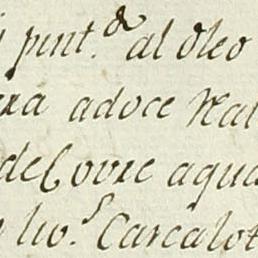 pint.do al oleo
adoce Ral
de Covre agua
liv.s Carcalot